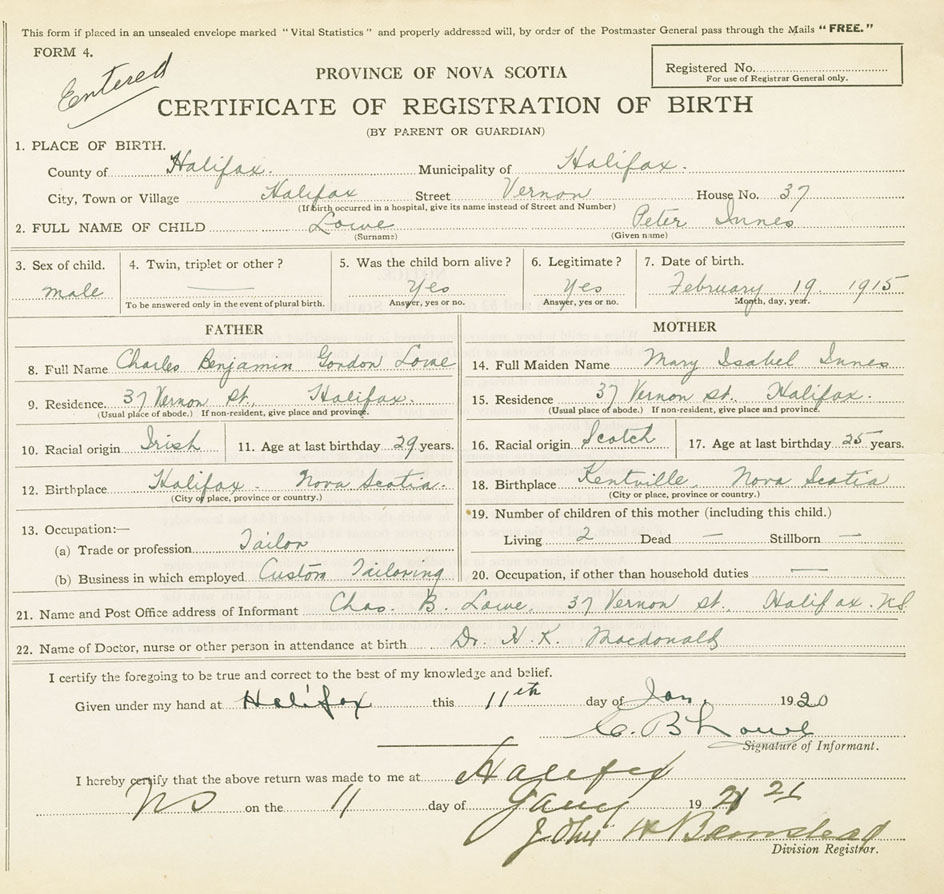 This form if placed in an unsealed envelope marked "Vital Statistics" and properly addressed will, by order of the Postmaster General pass through the Mails "FREE."
FORM 4.
Entered
Registered No.
For use of Registrar General only.
PROVINCE OF NOVA SCOTIA
CERTIFICATE OF REGISTRATION OF BIRTH
(BY PARENT OR GUARDIAN)
1. PLACE OF BIRTH.
County of Halifax. Municipality of Halifax.
City, Town or Village Halifax Street Vernon House No. 37
(If birth occurred in a hospital, give its name instead of Street and Number)
2. FULL NAME OF CHILD Lowe Peter Innes
(Surname) (Given name)
3. Sex of child. 4. Twin, triplet or other? 5. Was the child born alive? 6. Legitimate? 7. Date of birth.
male — Yes Yes February 19. 1915
To be answered only in the event of plural birth. Answer, yes or no. Answer, yes or no. Month, day, year.
FATHER MOTHER
8. Full Name Charles Benjamin Gordon Lowe 14. Full Maiden Name Mary Isabel Innes
9. Residence. 37 Vernon St. Halifax. 15. Residence 37 Vernon St. Halifax.
(Usual place of abode.) If non-resident, give place and province. (Usual place of abode.) If non-resident, give place and province.
10. Racial origin Irish 11. Age at last birthday 29 years. 16. Racial origin Scotch 17. Age at last birthday 25 years.
12. Birthplace Halifax. Nova Scotia. 18. Birthplace Kentville, Nova Scotia
(City or place, province or country.) (City or place, province or country.)
13. Occupation:— 19. Number of children of this mother (including this child.)
(a) Trade or profession Tailor Living 2 Dead — Stillborn —
(b) Business in which employed Custom Tailoring 20. Occupation, if other than household duties —
21. Name and Post Office address of Informant Chas. B. Lowe, 37 Vernon St. Halifax. NS
22. Name of Doctor, nurse or other person in attendance at birth Dr. H. K. Macdonald
I certify the foregoing to be true and correct to the best of my knowledge and belief.
Given under my hand at Halifax this 11th day of Jan. 1920
C. B Lowe
Signature of Informant.
I hereby certify that the above return was made to me at Halifax
NS on the 11 day of Jany 19 21 21
John H Barnstead
Division Registrar.